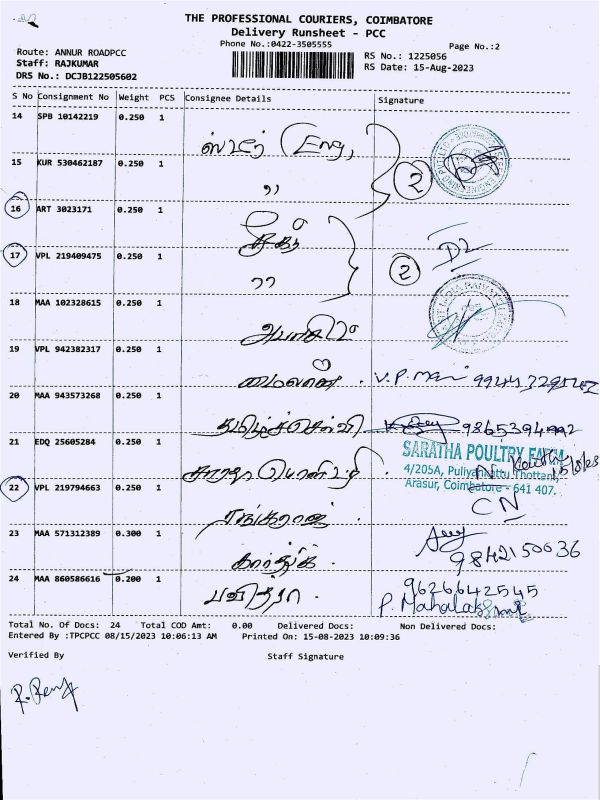 THE PROFESSIONAL COURIERS, COIMBATORE
Delivery Runsheet - PCC
Phone No.:0422-3505555
Page No.:2
Route: ANNUR ROADPCC
Staff: RAJKUMAR
DRS No.: DCJB122505602
RS No.: 1225056
RS Date: 15-Aug-2023
S No Consignment No Weight PCS Consignee Details Signature
14 SPB 10142219 0.250 1
ஸ்டார் (Eng,
15 KUR 530462187 0.250 1
,, 2
16 ART 3023171 0.250 1
D2
17 VPL 219409475 0.250 1
,, 2
18 MAA 102328615 0.250 1
19 VPL 942382317 0.250 1
V.P. Mani
20 MAA 943573268 0.250 1
தமிழ்ச்செல்வி
21 EDQ 25605284 0.250 1
சாரதா
SARATHA POULTRY FARM
4/205A, Puliyankattu Thottam,
Arasur, Coimbatore - 641 407.
22 VPL 219794663 0.250 1
ரங்கராஜ் CN
23 MAA 571312389 0.300 1
கார்த்திக் 9842150036
24 MAA 860586616 0.200 1
பவித்ரா 9626642545
P. Mahalakshmi
Total No. Of Docs: 24 Total COD Amt: 0.00 Delivered Docs: Non Delivered Docs:
Entered By :TPCPCC 08/15/2023 10:06:13 AM Printed On: 15-08-2023 10:09:36
Verified By Staff Signature